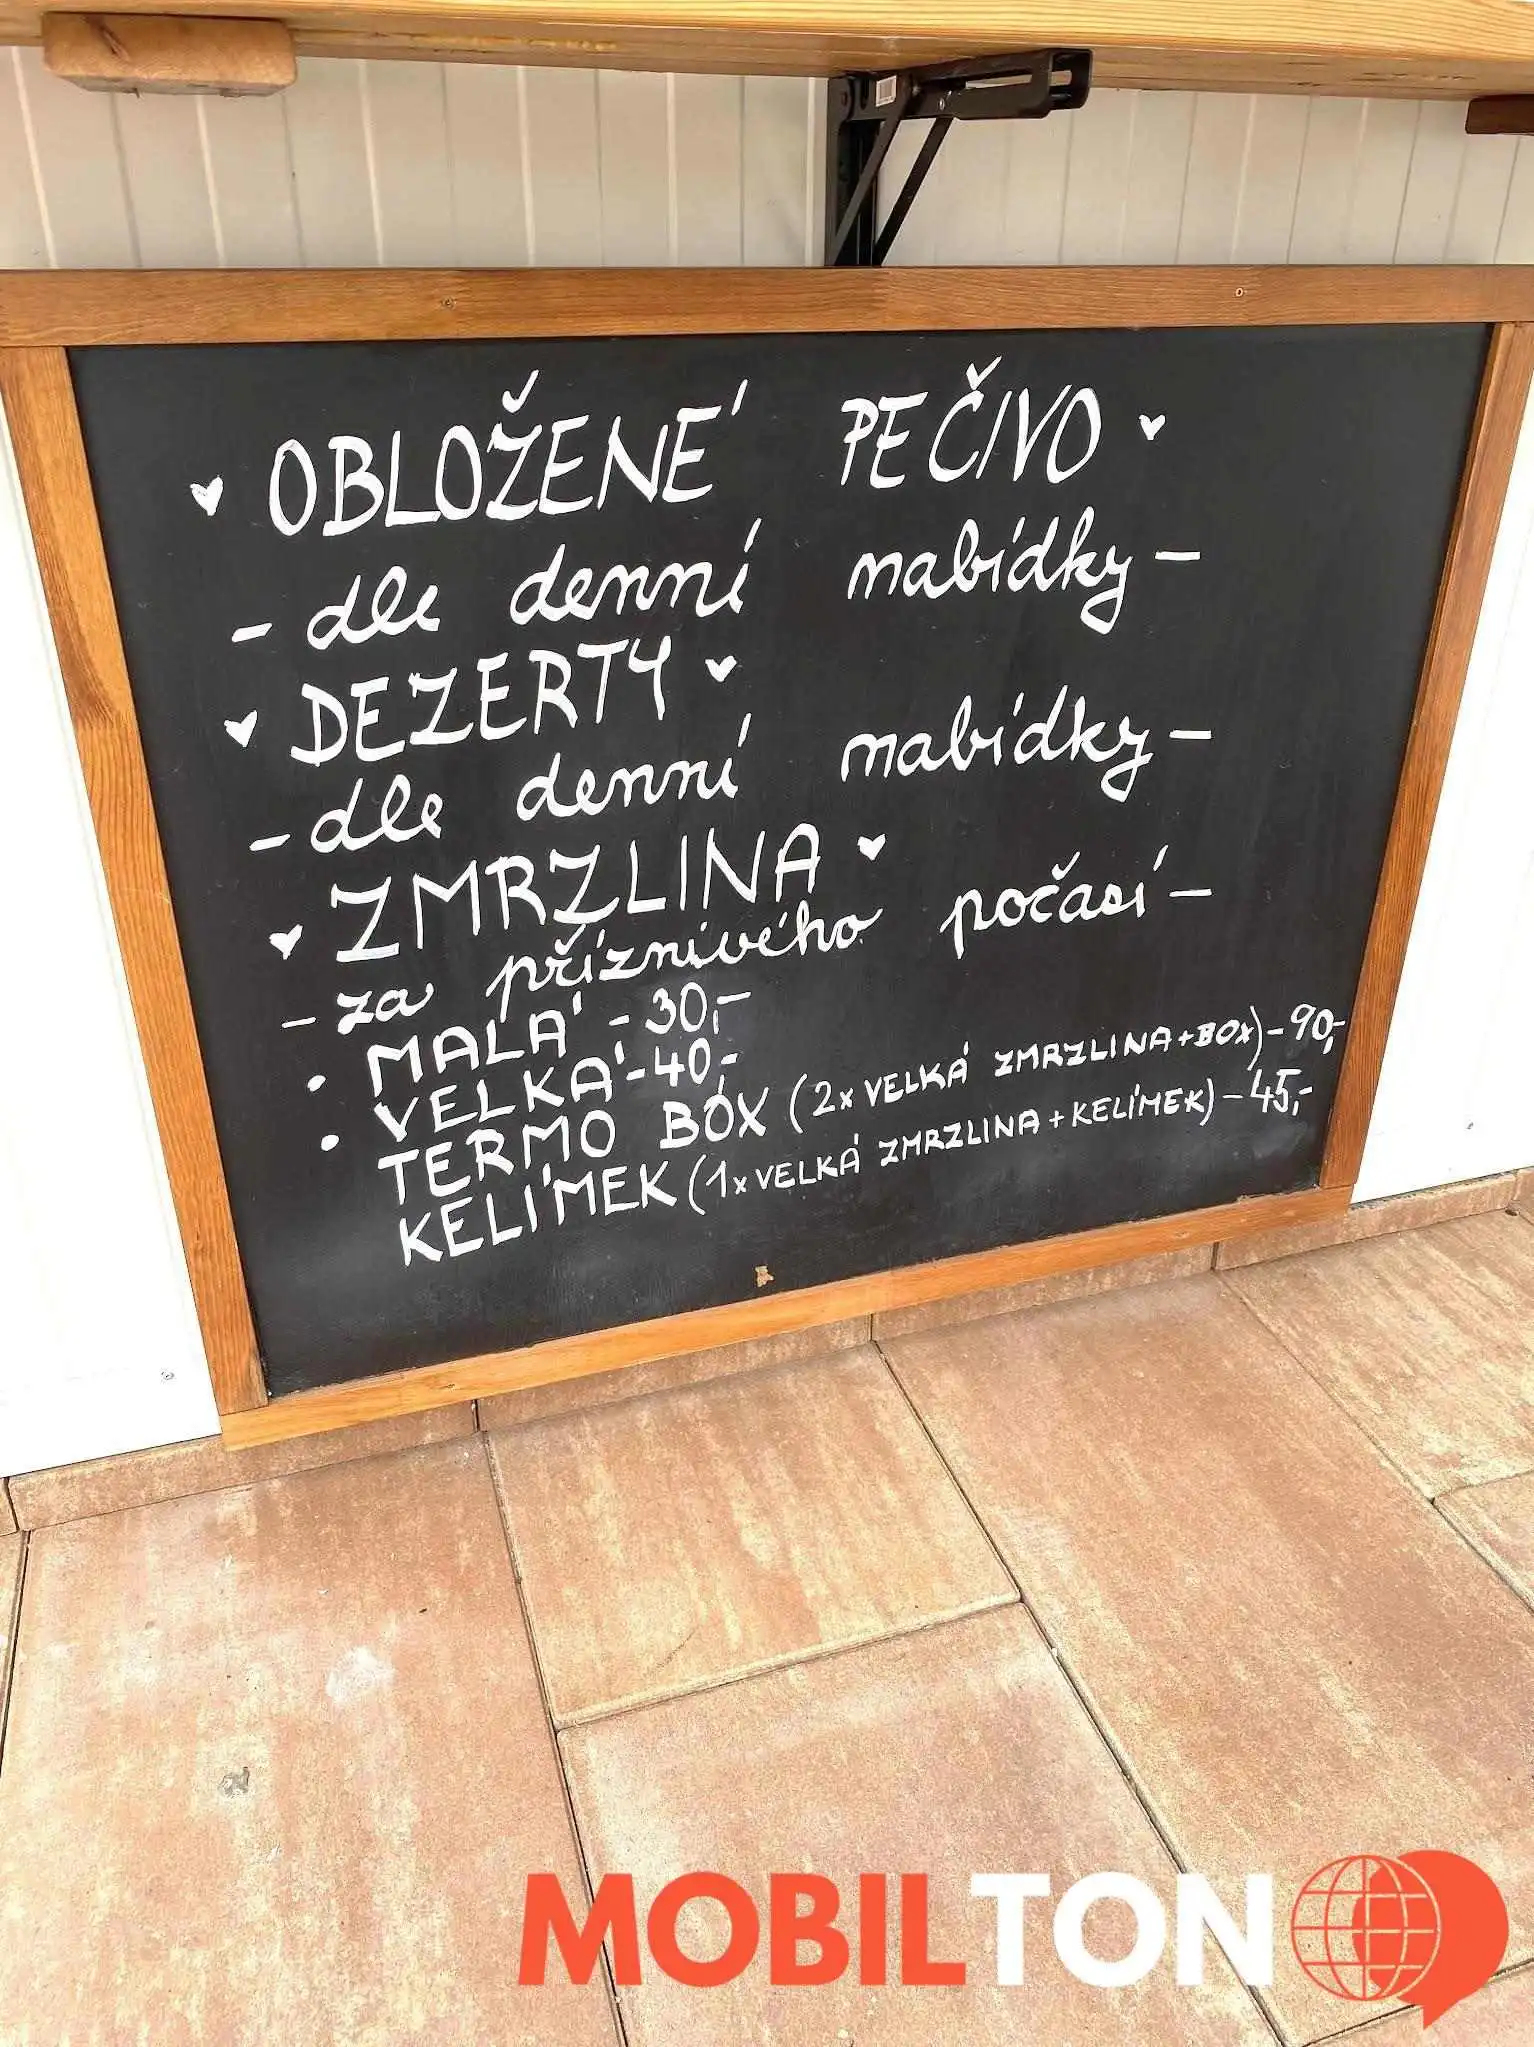 ♥ OBLOŽENÉ PEČIVO ♥
- dle denní nabídky -
♥ DEZERTY ♥
- dle denní nabídky -
♥ ZMRZLINA ♥
- za příznivého počasí -
• MALÁ - 30,-
• VELKÁ - 40,-
TERMO BOX (2x VELKÁ ZMRZLINA + BOX) - 90,-
KELÍMEK (1x VELKÁ ZMRZLINA + KELÍMEK) - 45,-
MOBILTON